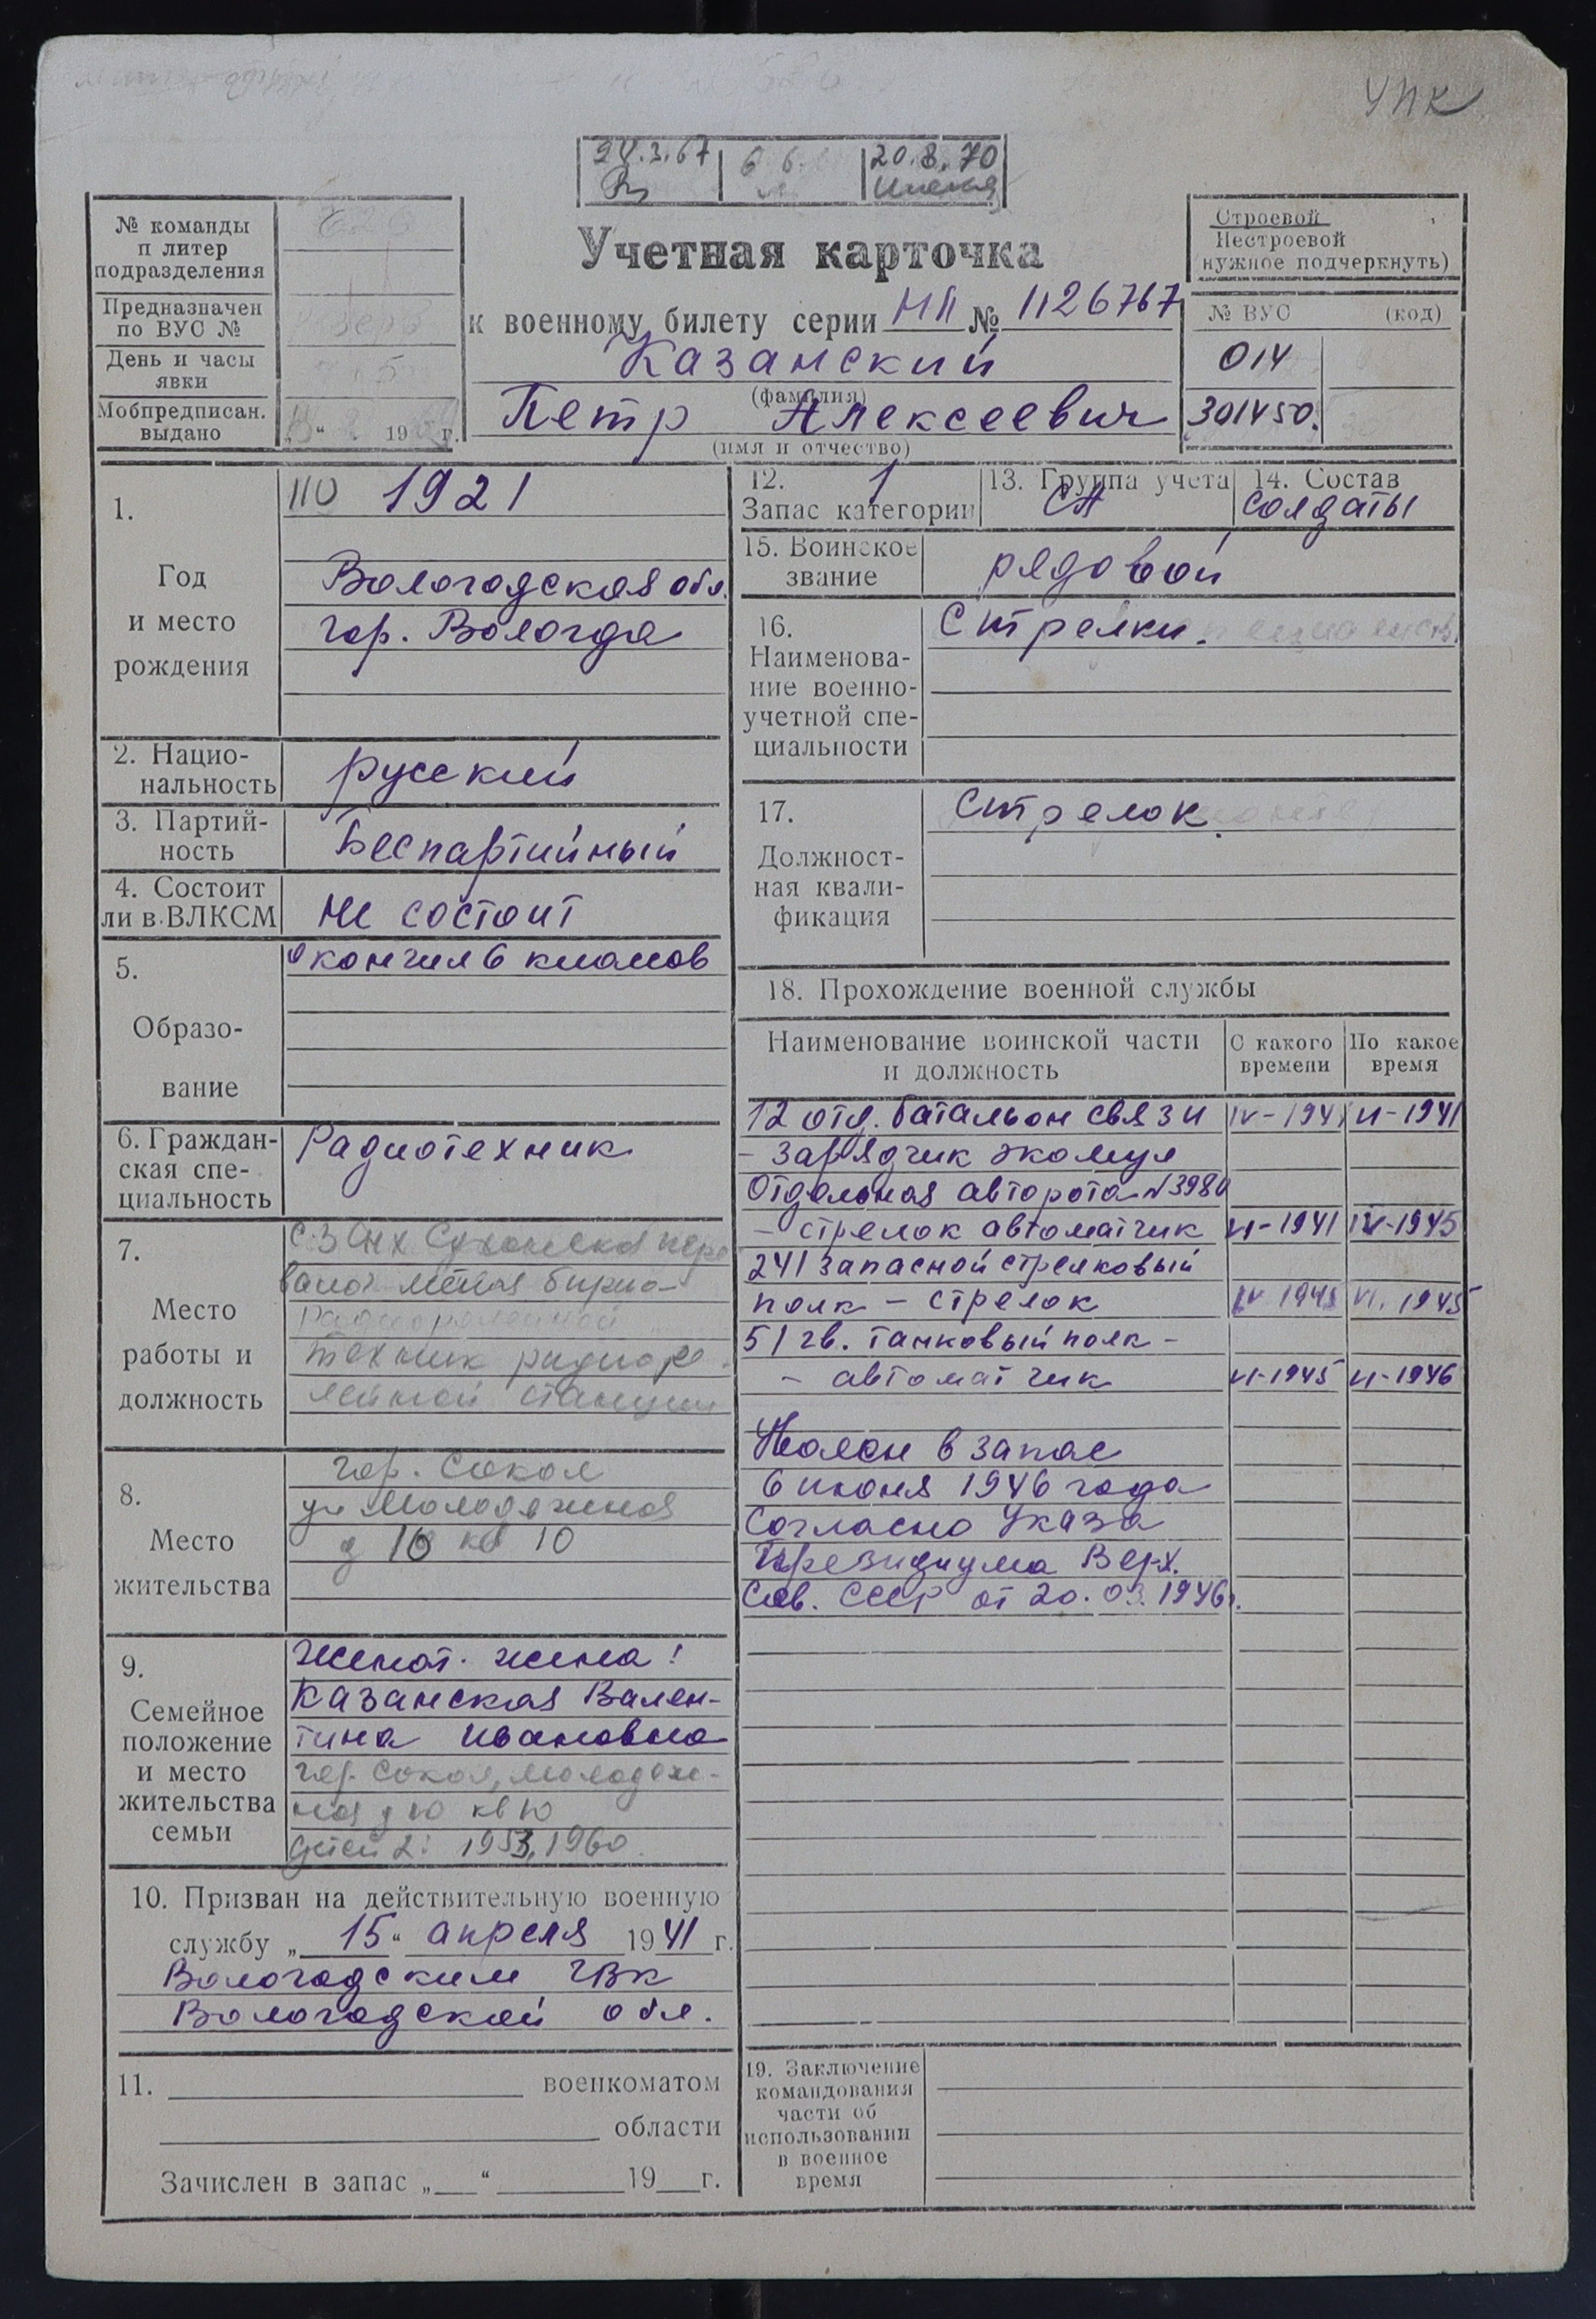 УПК
24.3.67
20.8.70
№ команды
и литер
подразделения
Предназначен
по ВУС №
День и часы
явки
Мобпредписан.
выдано
„ “ 19 г.
Учетная карточка
к военному билету серии НП № 1126767
Казанский
(фамилия)
Петр Алексеевич
(имя и отчество)
Строевой
Нестроевой
нужное подчеркнуть)
№ ВУС (код)
014
301450.
1.
Год
и место
рождения
1921
Вологодская обл.
гор. Вологда
2. Нацио-
нальность
русский
3. Партий-
ность
Беспартийный
4. Состоит
ли в ВЛКСМ
не состоит
5.
Образо-
вание
окончил 6 классов
6. Граждан-
ская спе-
циальность
Радиотехник
7.
Место
работы и
должность
техник радиоре-
лейной станции
8.
Место
жительства
гор. Сокол
ул Молодежная
д 10 кв 10
9.
Семейное
положение
и место
жительства
семьи
Женат. жена:
Казанская Вален-
тина Ивановна
гор. Сокол, Молодеж-
ная д 10 кв 10
детей 2: 1953, 1960.
10. Призван на действительную военную
службу „ 15 “ апреля 1941 г.
Вологодским ГВК
Вологодской обл.
11. военкоматом
области
Зачислен в запас „ “ 19 г.
12. 1
Запас категории
13. Группа учета
СА
14. Состав
солдаты
15. Воинское
звание
рядовой
16.
Наименова-
ние военно-
учетной спе-
циальности
Стрелки.
17.
Должност-
ная квали-
фикация
Стрелок.
18. Прохождение военной службы
Наименование воинской части
и должность
С какого
времени
По какое
время
12 отд. батальон связи IV-1941 VI-1941
- зарядчик
Отдельная авторота №3980
- стрелок автоматчик VI-1941 IV-1945
241 запасной стрелковый
полк - стрелок IV 1945 VI. 1945
51 гв. танковый полк -
- автоматчик VI-1945 VI-1946
Уволен в запас
6 июня 1946 года
Согласно Указа
Президиума Верх.
Сов. СССР от 20.03.1946г.
19. Заключение
командования
части об
использовании
в военное
время